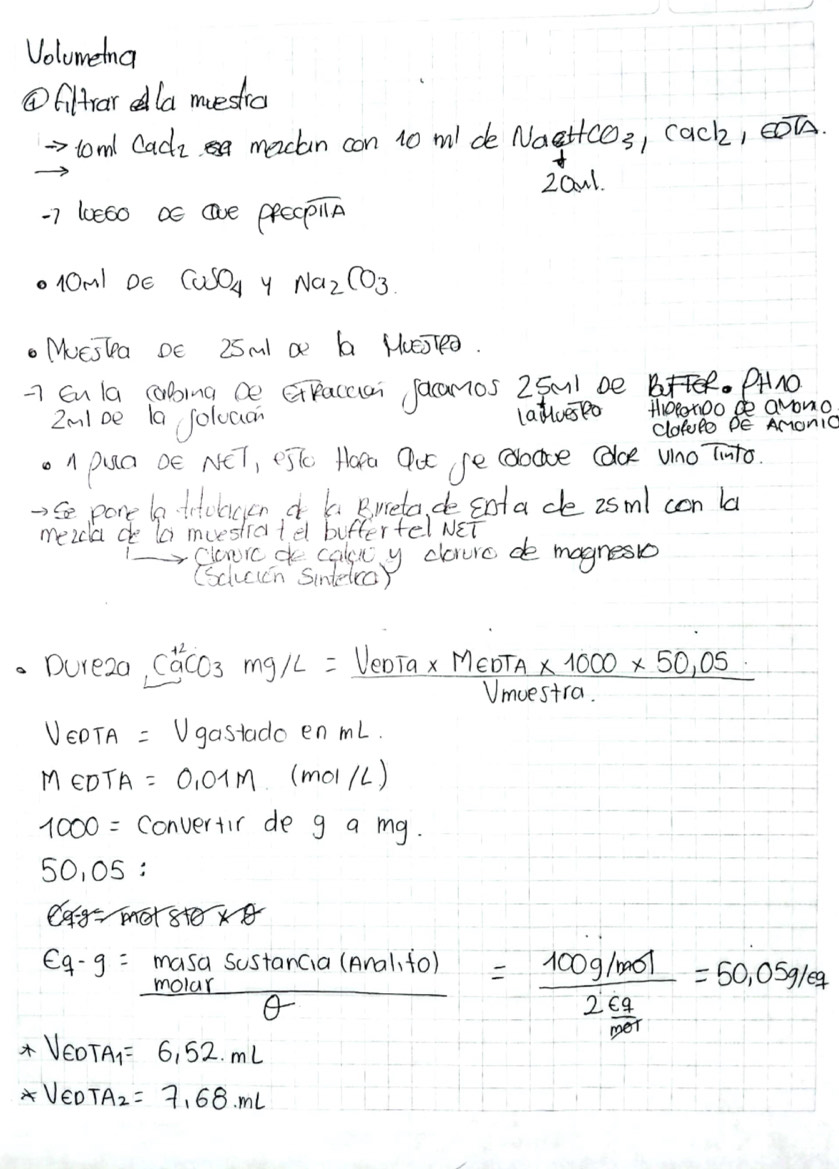 Volumetria
① filtrar la muestra
→ 10ml CaCl2 se mezclan con 10 ml de NaHCO3, CaCl2, EDTA.
→ 20ml.
→ luego DE QUE PRECPITA
• 10ml DE CuSO4 y Na2CO3.
• MUESTRA DE 25ml de la MUESTRA.
→ En la cabina DE Extracción sacamos 25ml DE BUFFER. PH10
2ml DE la solución la Muestra HIDROXIDO de amonio
CLORURO DE AMONIO
• 1 pizca DE NET, esto Hara Que se coloque color vino Tinto.
→ Se pone la titulación de la Bureta de Edta de 25ml con la
mezcla de la muestra + el buffer + el NET
→ cloruro de calcio y cloruro de magnesio
(Solución Sintetica)
• Dureza CaCO3 mg/L = VEDTA x MEDTA x 1000 x 50,05
+2
Vmuestra.
VEDTA = V gastado en mL.
M EDTA = 0,01M. (mol/L)
1000 = Convertir de g a mg.
50,05 :
Eq-g = masa Sustancia (Analito) = 100g/mol = 50,05g/eq
molar
θ 2 Eq
mol
* VEDTA1= 6,52.mL
* VEDTA2= 7,68.mL